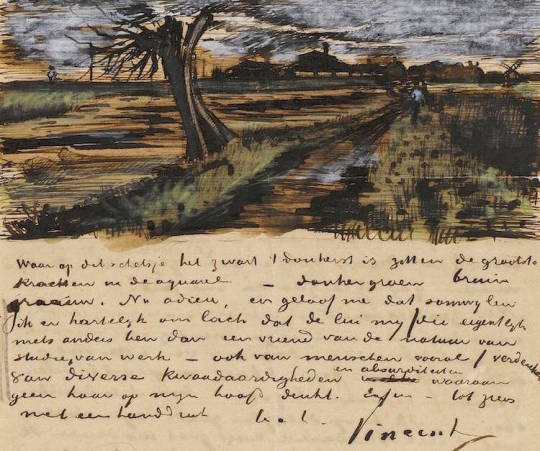 Waar op dit schetsje het zwart 't donkerst is zitten de grootste
krachten in de aquarel — donkergroen bruin
graauw. Nu adieu, en geloof me dat somwylen
ik er hartelyk om lach dat de lui my (die eigentlyk
niets anders ben dan een vriend van de natuur van
studie, van werk — ook van menschen vooral) verdenken
van diverse kwaadaardigheden en absurditeiten waaraan
geen haar op myn hoofd denkt. Enfin — tot ziens
met een handdruk b. à t.
Vincent